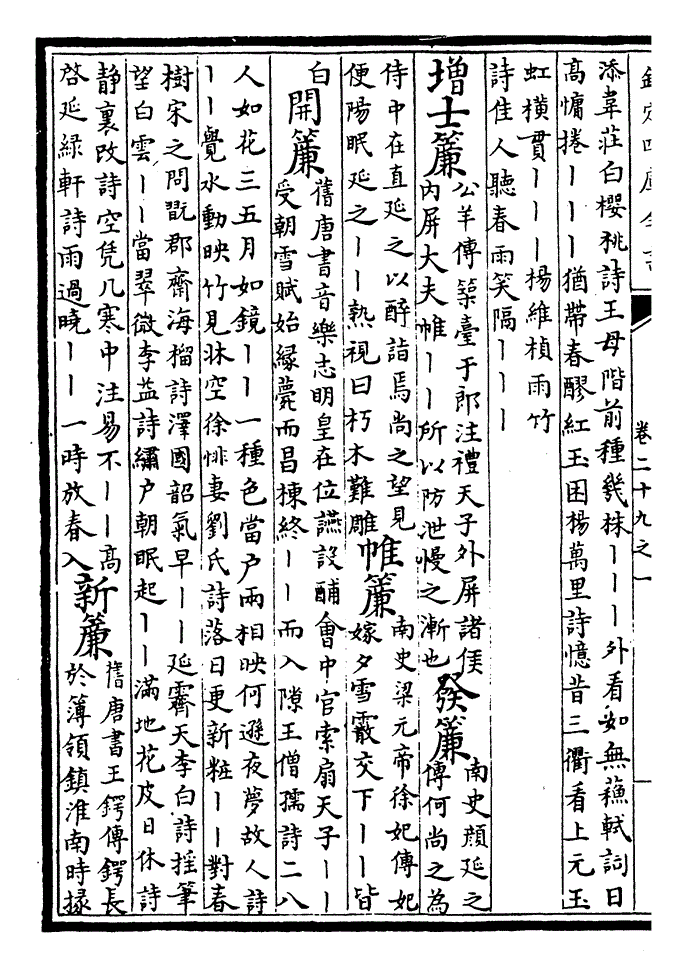 欽定四庫全書
卷二十九之一
添韋莊白櫻桃詩王母階前種㡬株丨丨丨外看如無蘓軾詞日
髙慵捲丨丨丨猶帶春醪紅玉困楊萬里詩憶昔三衢看上元玉
虹橫貫丨丨丨楊維楨雨竹
詩佳人聽春雨笑隔丨丨丨
增士簾
公羊傳築臺于郎注禮天子外屏諸侯
内屏大夫帷丨丨所以防泄慢之漸也
發簾
南史顔延之
傳何尚之為
侍中在直延之以醉詣焉尚之望見
便陽眠延之丨丨熟視曰朽木難雕
帷簾
南史梁元帝徐妃傳妃
嫁夕雪霰交下丨丨皆
白
開簾
舊唐書音樂志明皇在位讌設酺會中官索扇天子丨丨
受朝雪賦始縁甍而昌棟終丨丨而入隙王僧孺詩二八
人如花三五月如鏡丨丨一種色當户兩相映何遜夜夢故人詩
丨丨覺水動映竹見牀空徐悱妻劉氏詩落日更新粧丨丨對春
樹宋之問翫郡齋海榴詩澤國韶氣早丨丨延霽天李白詩揺筆
望白雲丨丨當翠微李益詩繡户朝眠起丨丨滿地花皮日休詩
静裏改詩空凭几寒中注易不丨丨髙
啓延緑軒詩雨過曉丨丨一時放春入
新簾
舊唐書王鍔傳鍔長
於簿領鎮淮南時掾